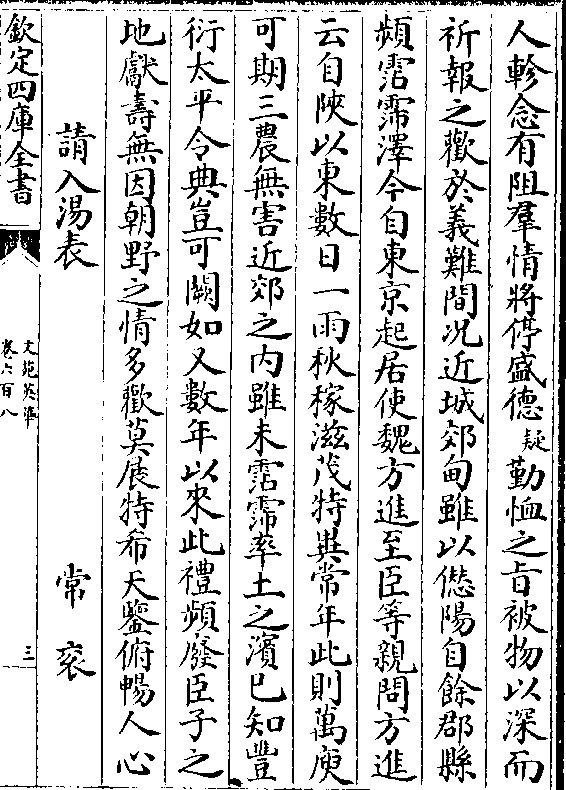 人軫念有阻羣情將停盛德疑勤恤之旨被物以深而
祈報之歡於義難間况近城郊甸雖以愆陽自餘郡縣
頻霑霈澤今自東京起居使魏方進至臣等親問方進
云自陜以東數日一雨秋稼滋茂特異常年此則萬庾
可期三農無害近郊之内雖未霑霈率土之濱已知豐
衍太平令典豈可闕如又數年以來此禮頻廢臣子之
地獻壽無因朝野之情多歡莫展特希天鑒俯暢人心
請入湯表 常衮
欽定四庫全書
文苑英華
卷六百八
三